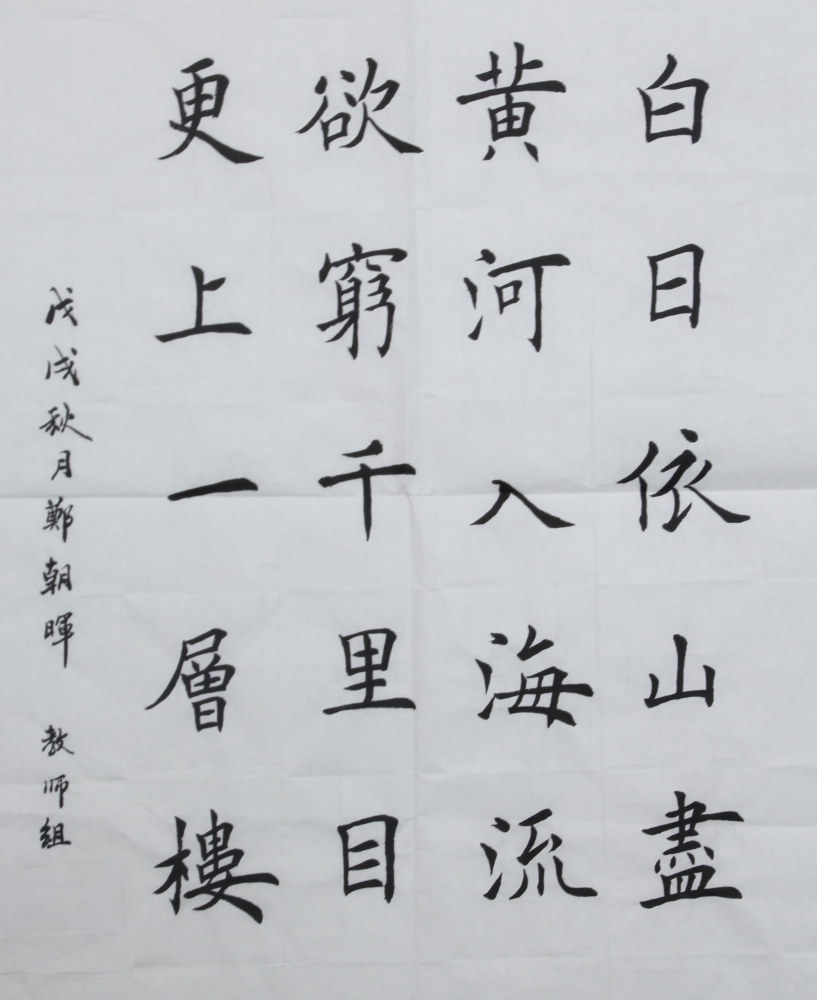 白日依山盡
黃河入海流
欲窮千里目
更上一層樓
戊戌秋月鄭朝暉 教师組